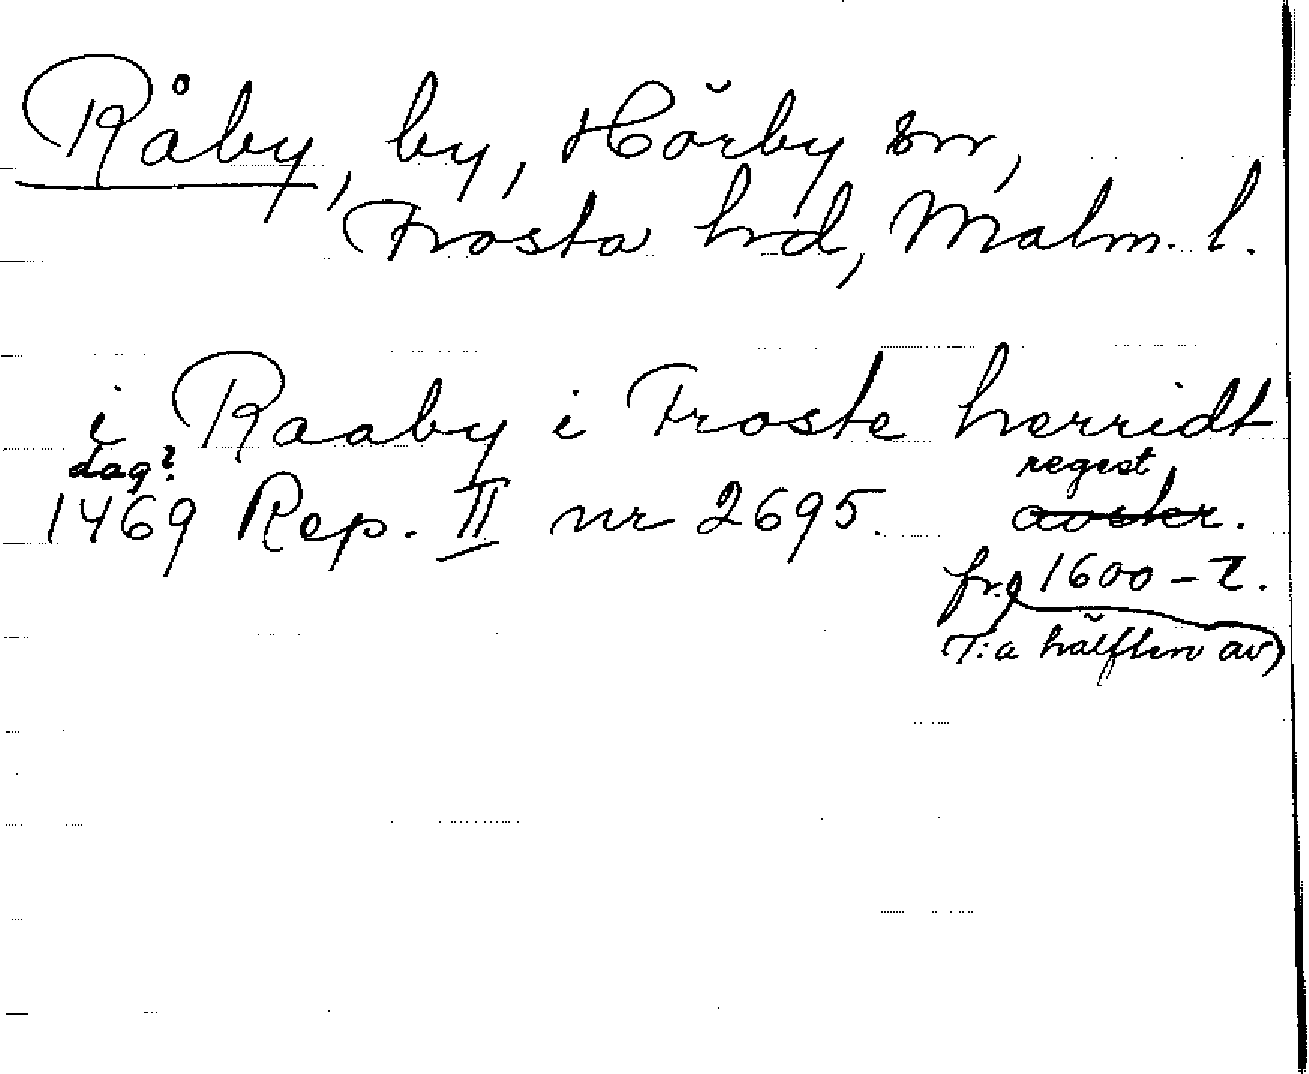 Råby, by, Hörby sn,
Frosta hd, Malm. l.
i Raaby i Froste herridt
dag? regest
1469 Rep. II nr 2695. avskr.
fr. 1600-t.
(1:a hälften av)